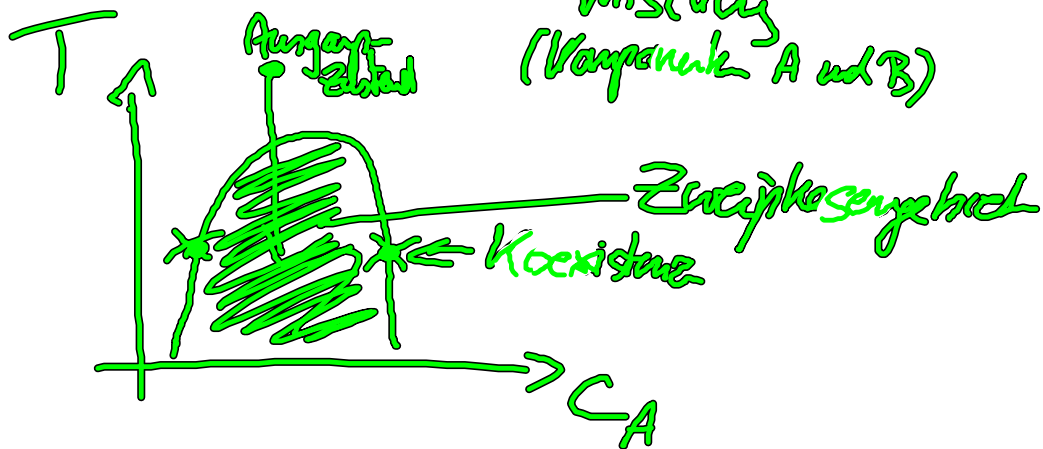 Mischung
(Komponente A und B)
T
Ausgangs-
zustand
Zweiphasengebiet
Koexistenz
C_A